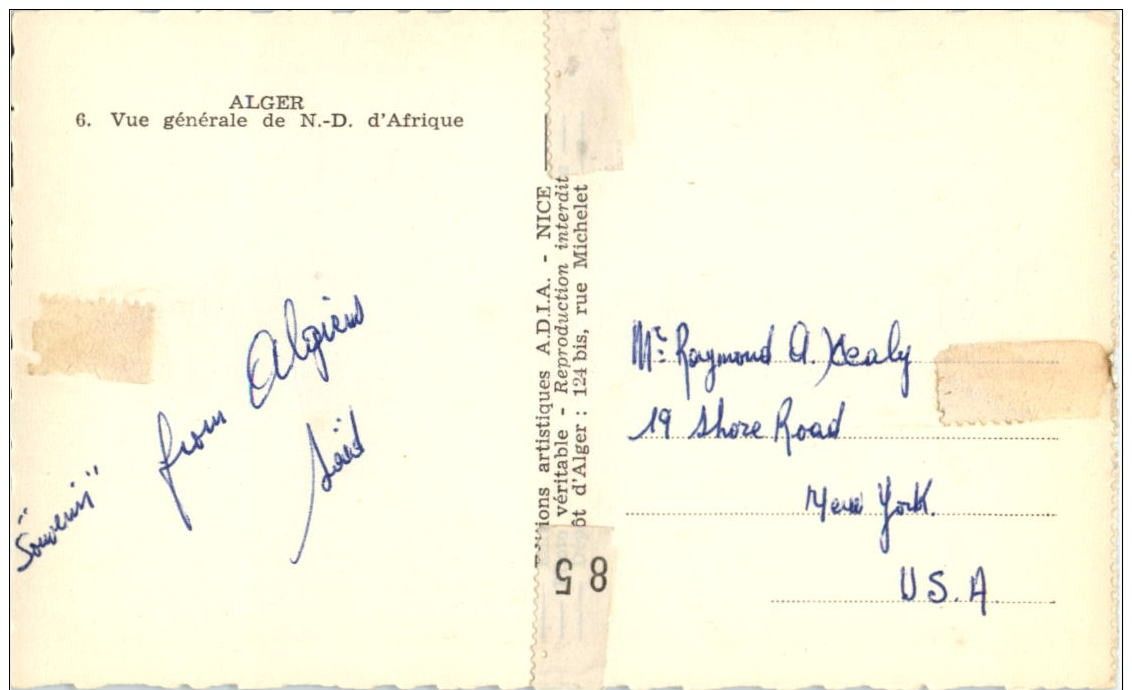 ALGER
6. Vue générale de N.-D. d'Afrique
"Souvenir"
from Algiers
Saïd
ions artistiques A.D.I.A. - NICE
véritable - Reproduction interdit
ôt d'Alger : 124 bis, rue Michelet
85
Mr: Raymond A. Healy
19 Shore Road
New York.
U S. A